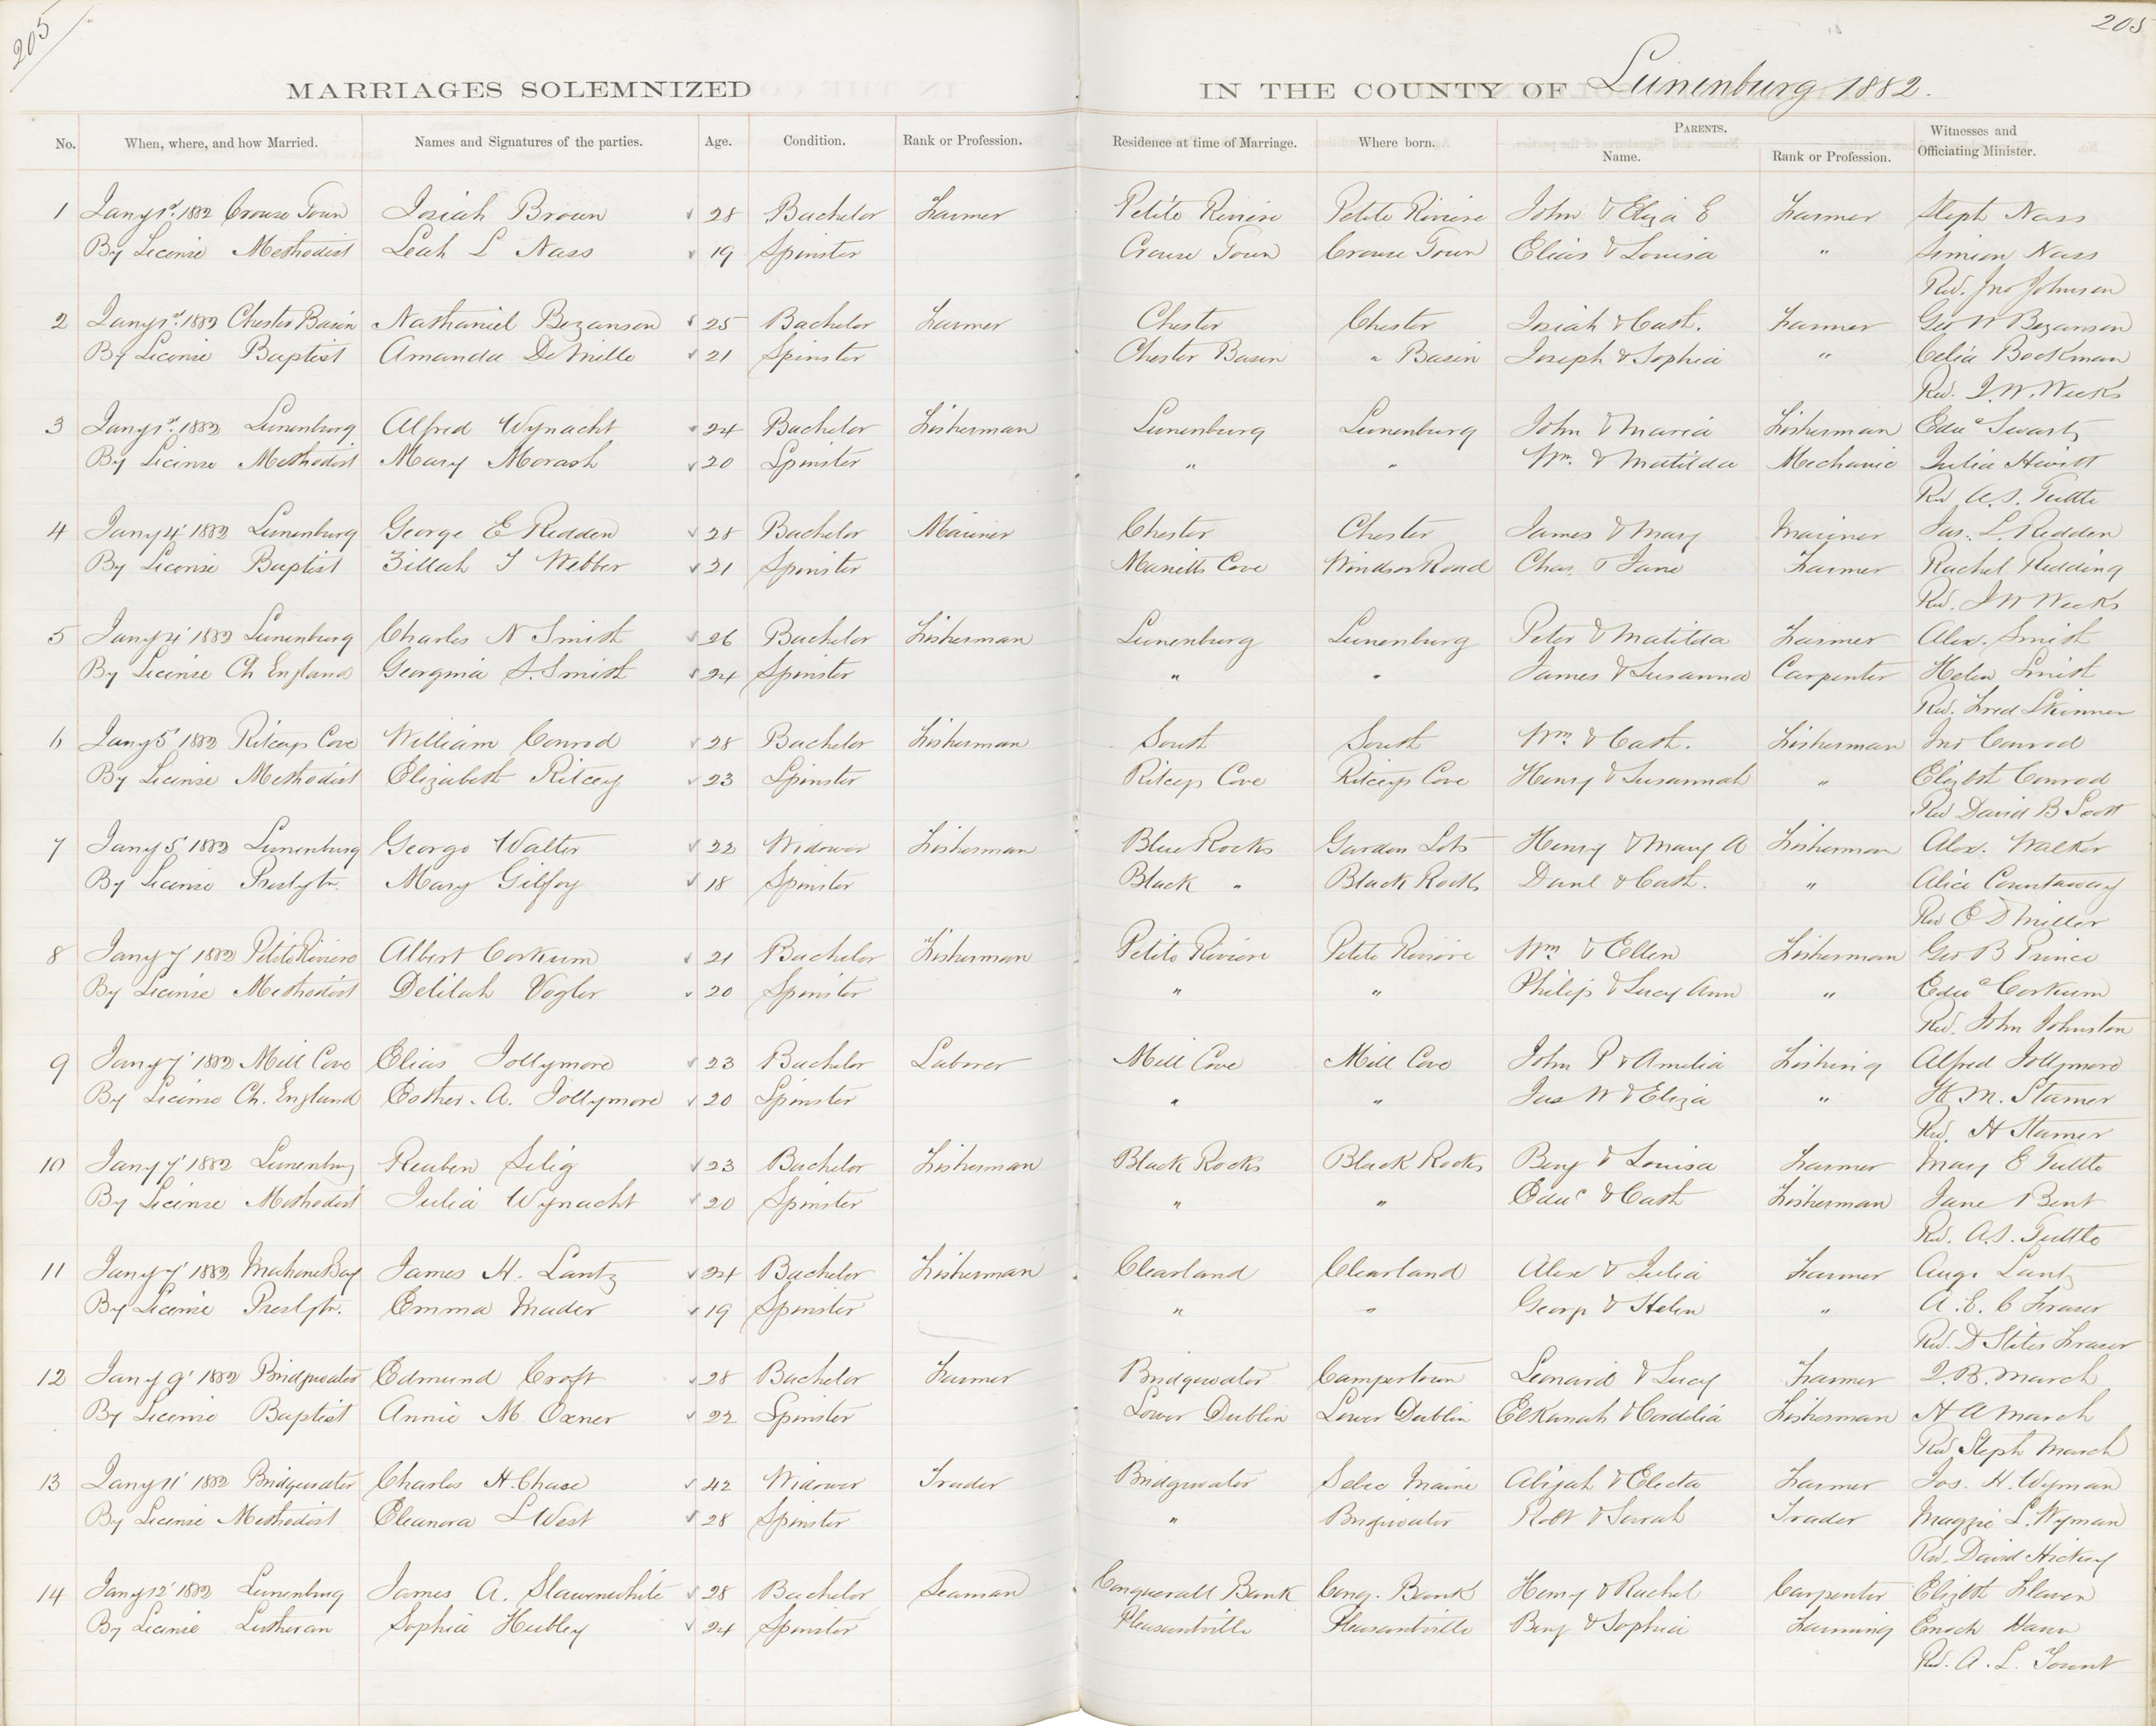 205
205
MARRIAGES SOLEMNIZED IN THE COUNTY OF Lunenburg 1882.
No. When, where, and how Married. Names and Signatures of the parties. Age. Condition. Rank or Profession. Residence at time of Marriage. Where born. PARENTS. Name. Rank or Profession. Witnesses and Officiating Minister.
1 Jany 1st 1882 Crouse Town Josiah Brown 28 Bachelor Farmer Petite Riviere Petite Riviere John & Eliza E Farmer Steph Nass
By License Methodist Leah L Nass 19 Spinster Crouse Town Crouse Town Elias & Louisa " Simion Nass
Rev. Jno Johnson
2 Jany 1st 1882 Chester Basin Nathaniel Bezanson 25 Bachelor Farmer Chester Chester Josiah & Cath. Farmer Geo W Bezanson
By License Baptist Amanda DeMille 21 Spinster Chester Basin " Basin Joseph & Sophia " Celia Bockman
Rev. I. W. Weeks
3 Jany 1st 1882 Lunenburg Alfred Wynacht 24 Bachelor Fisherman Lunenburg Lunenburg John & Maria Fisherman Edwd Swartz
By License Methodist Mary Morash 20 Spinster " " Wm. & Matilda Mechanic Julia Hewitt
Rev A. S. Tuttle
4 Jany 4' 1882 Lunenburg George E Redden 28 Bachelor Mariner Chester Chester James & Mary Mariner Jas. L. Redden
By License Baptist Zillah J Webber 21 Spinster Marietts Cove Windsor Road Chas. & Jane Farmer Rachel Redding
Rev. I W Weeks
5 Jany 4' 1882 Lunenburg Charles N Smith 26 Bachelor Fisherman Lunenburg Lunenburg Peter & Matilda Farmer Alex. Smith
By License Ch England Georgina S. Smith 24 Spinster " " James & Susanna Carpenter Helen Smith
Rev. Fred Skinner
6 Jany 5' 1882 Ritceys Cove William Conrod 28 Bachelor Fisherman South South Wm. & Cath. Fisherman Jno Conrod
By License Methodist Elizabeth Ritcey 23 Spinster Ritceys Cove Ritceys Cove Henry & Susannah " Elizbth Conrod
Rev David B Scott
7 Jany 5' 1882 Lunenburg George Walter 22 Widower Fisherman Blue Rocks Garden Lots Henry & Mary A Fisherman Alex. Walker
By License Presbytn. Mary Gilfoy 18 Spinster Black " Black Rocks Danl & Cath. " Alice Countaway
Rev E D Miller
8 Jany 7' 1882 Petite Riviere Albert Corkum 21 Bachelor Fisherman Petite Riviere Petite Riviere Wm & Ellen Fisherman Geo B Prince
By License Methodist Delilah Vogler 20 Spinster " " Philip & Lucy Ann " Edwd Corkum
Rev. John Johnston
9 Jany 7' 1882 Mill Cove Elias Jollymore 23 Bachelor Laborer Mill Cove Mill Cove John P & Amelia Fishing Alfred Jollymore
By License Ch. England Esther. A. Jollymore 20 Spinster " " Jas W & Eliza " H M. Stamer
Rev. H Stamer
10 Jany 7' 1882 Lunenburg Reuben Selig 23 Bachelor Fisherman Black Rocks Black Rocks Benj & Louisa Farmer Mary E Tuttle
By License Methodist Julia Wynacht 20 Spinster " " Edwd & Cath Fisherman Jane Bent
Rev. A. S. Tuttle
11 Jany 7' 1882 Mahone Bay James H. Lantz 24 Bachelor Fisherman Clearland Clearland Alex & Julia Farmer Augs Lantz
By License Presbytn. Emma Mader 19 Spinster " " George & Helen " A. E. C Fraser
Rev. D Stiles Fraser
12 Jany 9' 1882 Bridgewater Edmund Croft 28 Bachelor Farmer Bridgewater Campertown Leonard & Lucy Farmer I. B. March
By License Baptist Annie M Oxner 22 Spinster Lower Dublin Lower Dublin Elkanah & Cordelia Fisherman H A March
Rev Steph March
13 Jany 11' 1882 Bridgewater Charles H. Chase 42 Widower Trader Bridgewater Sebec Maine Abijah & Electa Farmer Jos. H. Wyman
By License Methodist Eleanora L West 28 Spinster " Bridgewater Robt & Sarah Trader Maggie L. Wyman
Rev. David Hickey
14 Jany 12' 1882 Lunenburg James A. Slawenwhite 28 Bachelor Seaman Conquerall Bank Conq. Bank Henry & Rachel Carpenter Elizbth Slaven
By License Lutheran Sophia Hubley 24 Spinster Pleasantville Pleasantville Benj & Sophia Farming Enoch
Rev. A. L. Yount